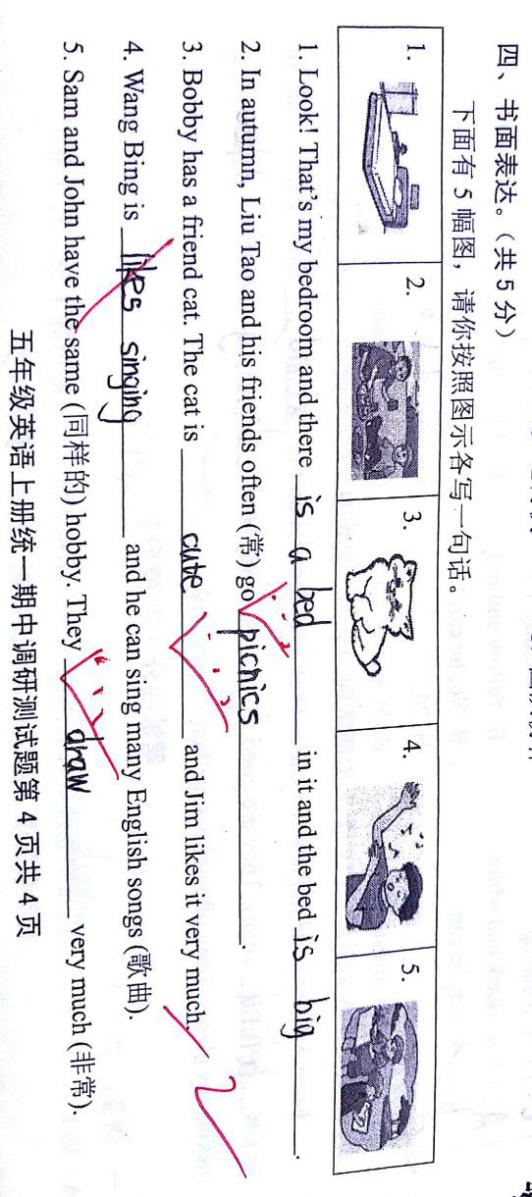 四、书面表达。(共 5 分)
下面有 5 幅图，请你按照图示各写一句话。
1. 2. 3. 4. 5.
1. Look! That's my bedroom and there is a bed in it and the bed is big.
2. In autumn, Liu Tao and his friends often (常) go picnics.
3. Bobby has a friend cat. The cat is cute and Jim likes it very much.
4. Wang Bing is likes singing and he can sing many English songs (歌曲).
5. Sam and John have the same (同样的) hobby. They draw very much (非常).
五年级英语上册统一期中调研测试题第 4 页共 4 页